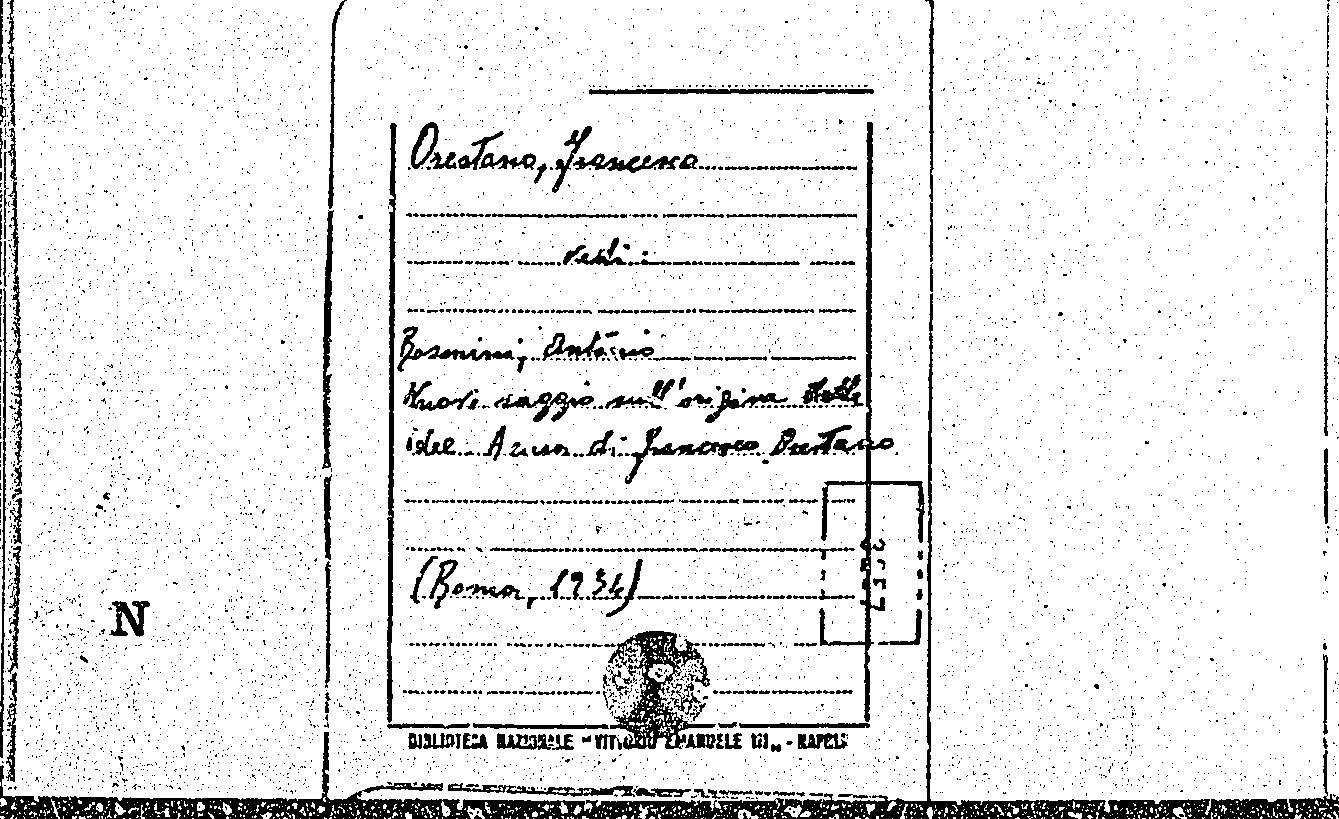 Orestano, Francesco
vedi:
Rosmini, Antonio
Nuovo saggio sull'origine delle
idee. A cura di Francesco Orestano
(Roma, 1934)
N
BIBLIOTECA NAZIONALE "VITTORIO EMANUELE III" - NAPOLI